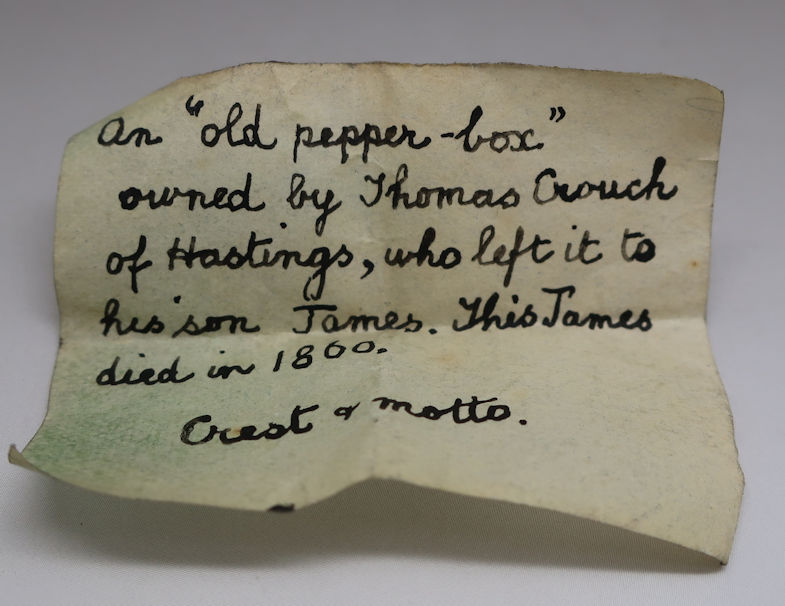 An "old pepper-box"
owned by Thomas Crouch
of Hastings, who left it to
his son James. This James
died in 1860.
Crest & motto.